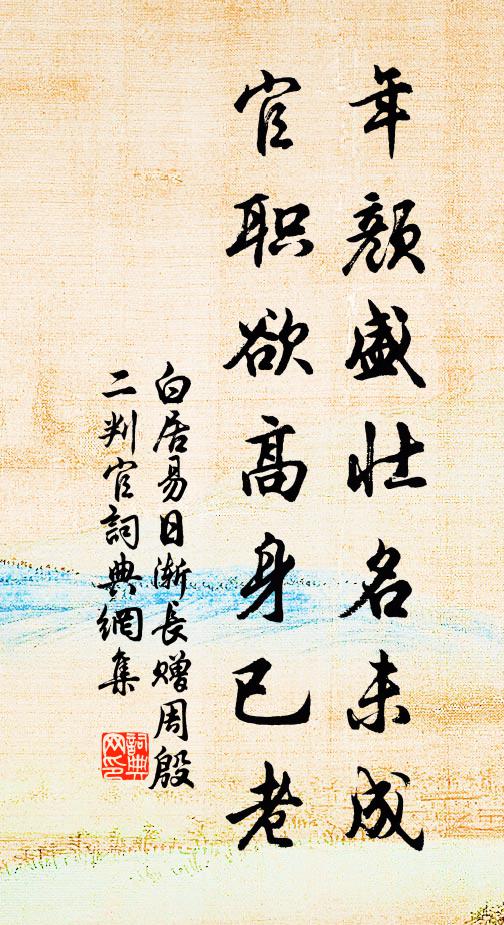 年颜盛壮名未成
官职欲高身已老
白居易日渐长赠周殷
二判官詞典網集
詞典
网印